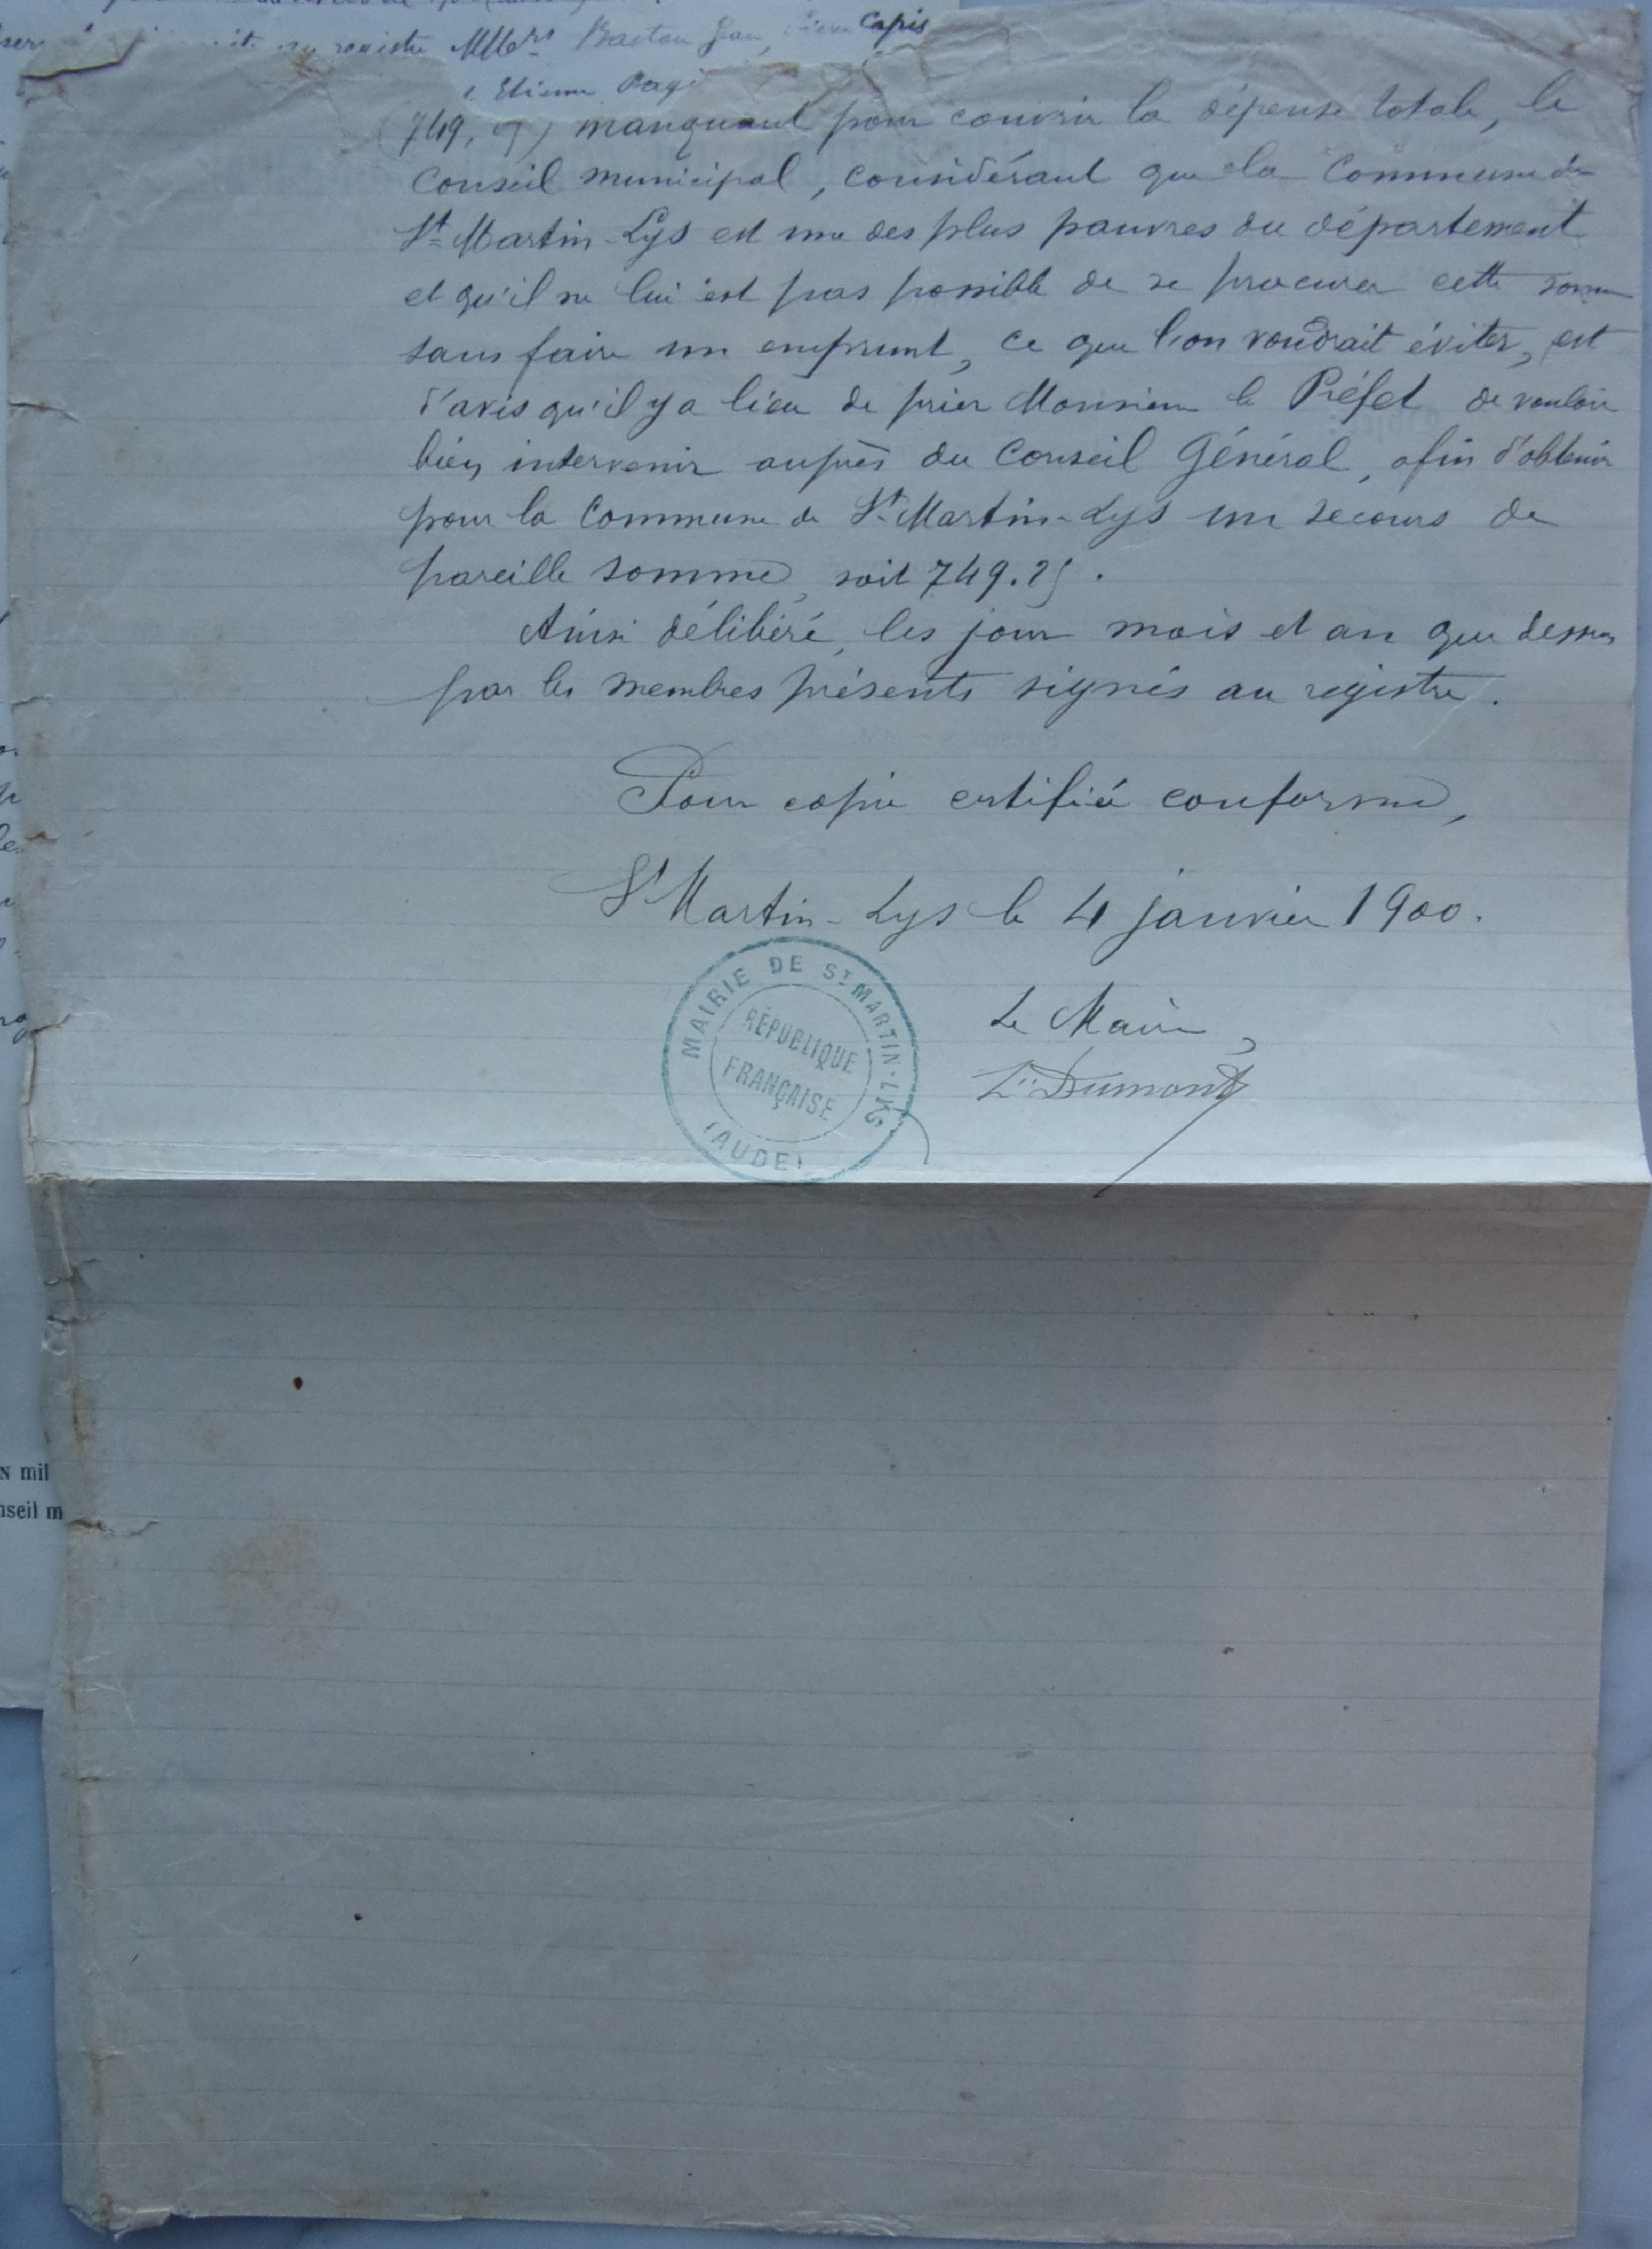 registre MMers Bacton Jean, Pierre Capis
Etienne
(749, ) manquant pour couvrir la dépense totale, le
Conseil municipal, considérant que la Commune de
St Martin-Lys est une des plus pauvres du département
et qu'il ne lui est pas possible de se procurer cette somme
sans faire un emprunt, ce que l'on voudrait éviter, est
d'avis qu'il y a lieu de prier Monsieur le Préfet de vouloir
bien intervenir auprès du Conseil Général, afin d'obtenir
pour la Commune de St Martin-Lys un secours de
pareille somme, soit 749.25.
Ainsi délibéré, les jour mois et an que dessus
par les membres présents signés au registre.
Pour copie certifiée conforme,
St Martin-Lys le 4 janvier 1900.
Le Maire,
Dumont
MAIRIE DE ST MARTIN-LYS
RÉPUBLIQUE
FRANÇAISE
(AUDE)
N mil
nseil m